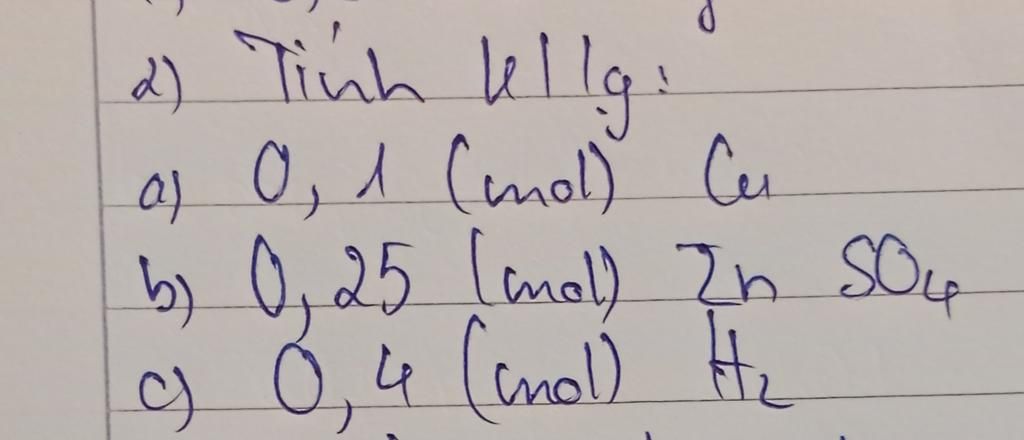 2) Tính kl lg:
a) 0,1 (mol) Cu
b) 0,25 (mol) Zn SO4
c) 0,4 (mol) H2